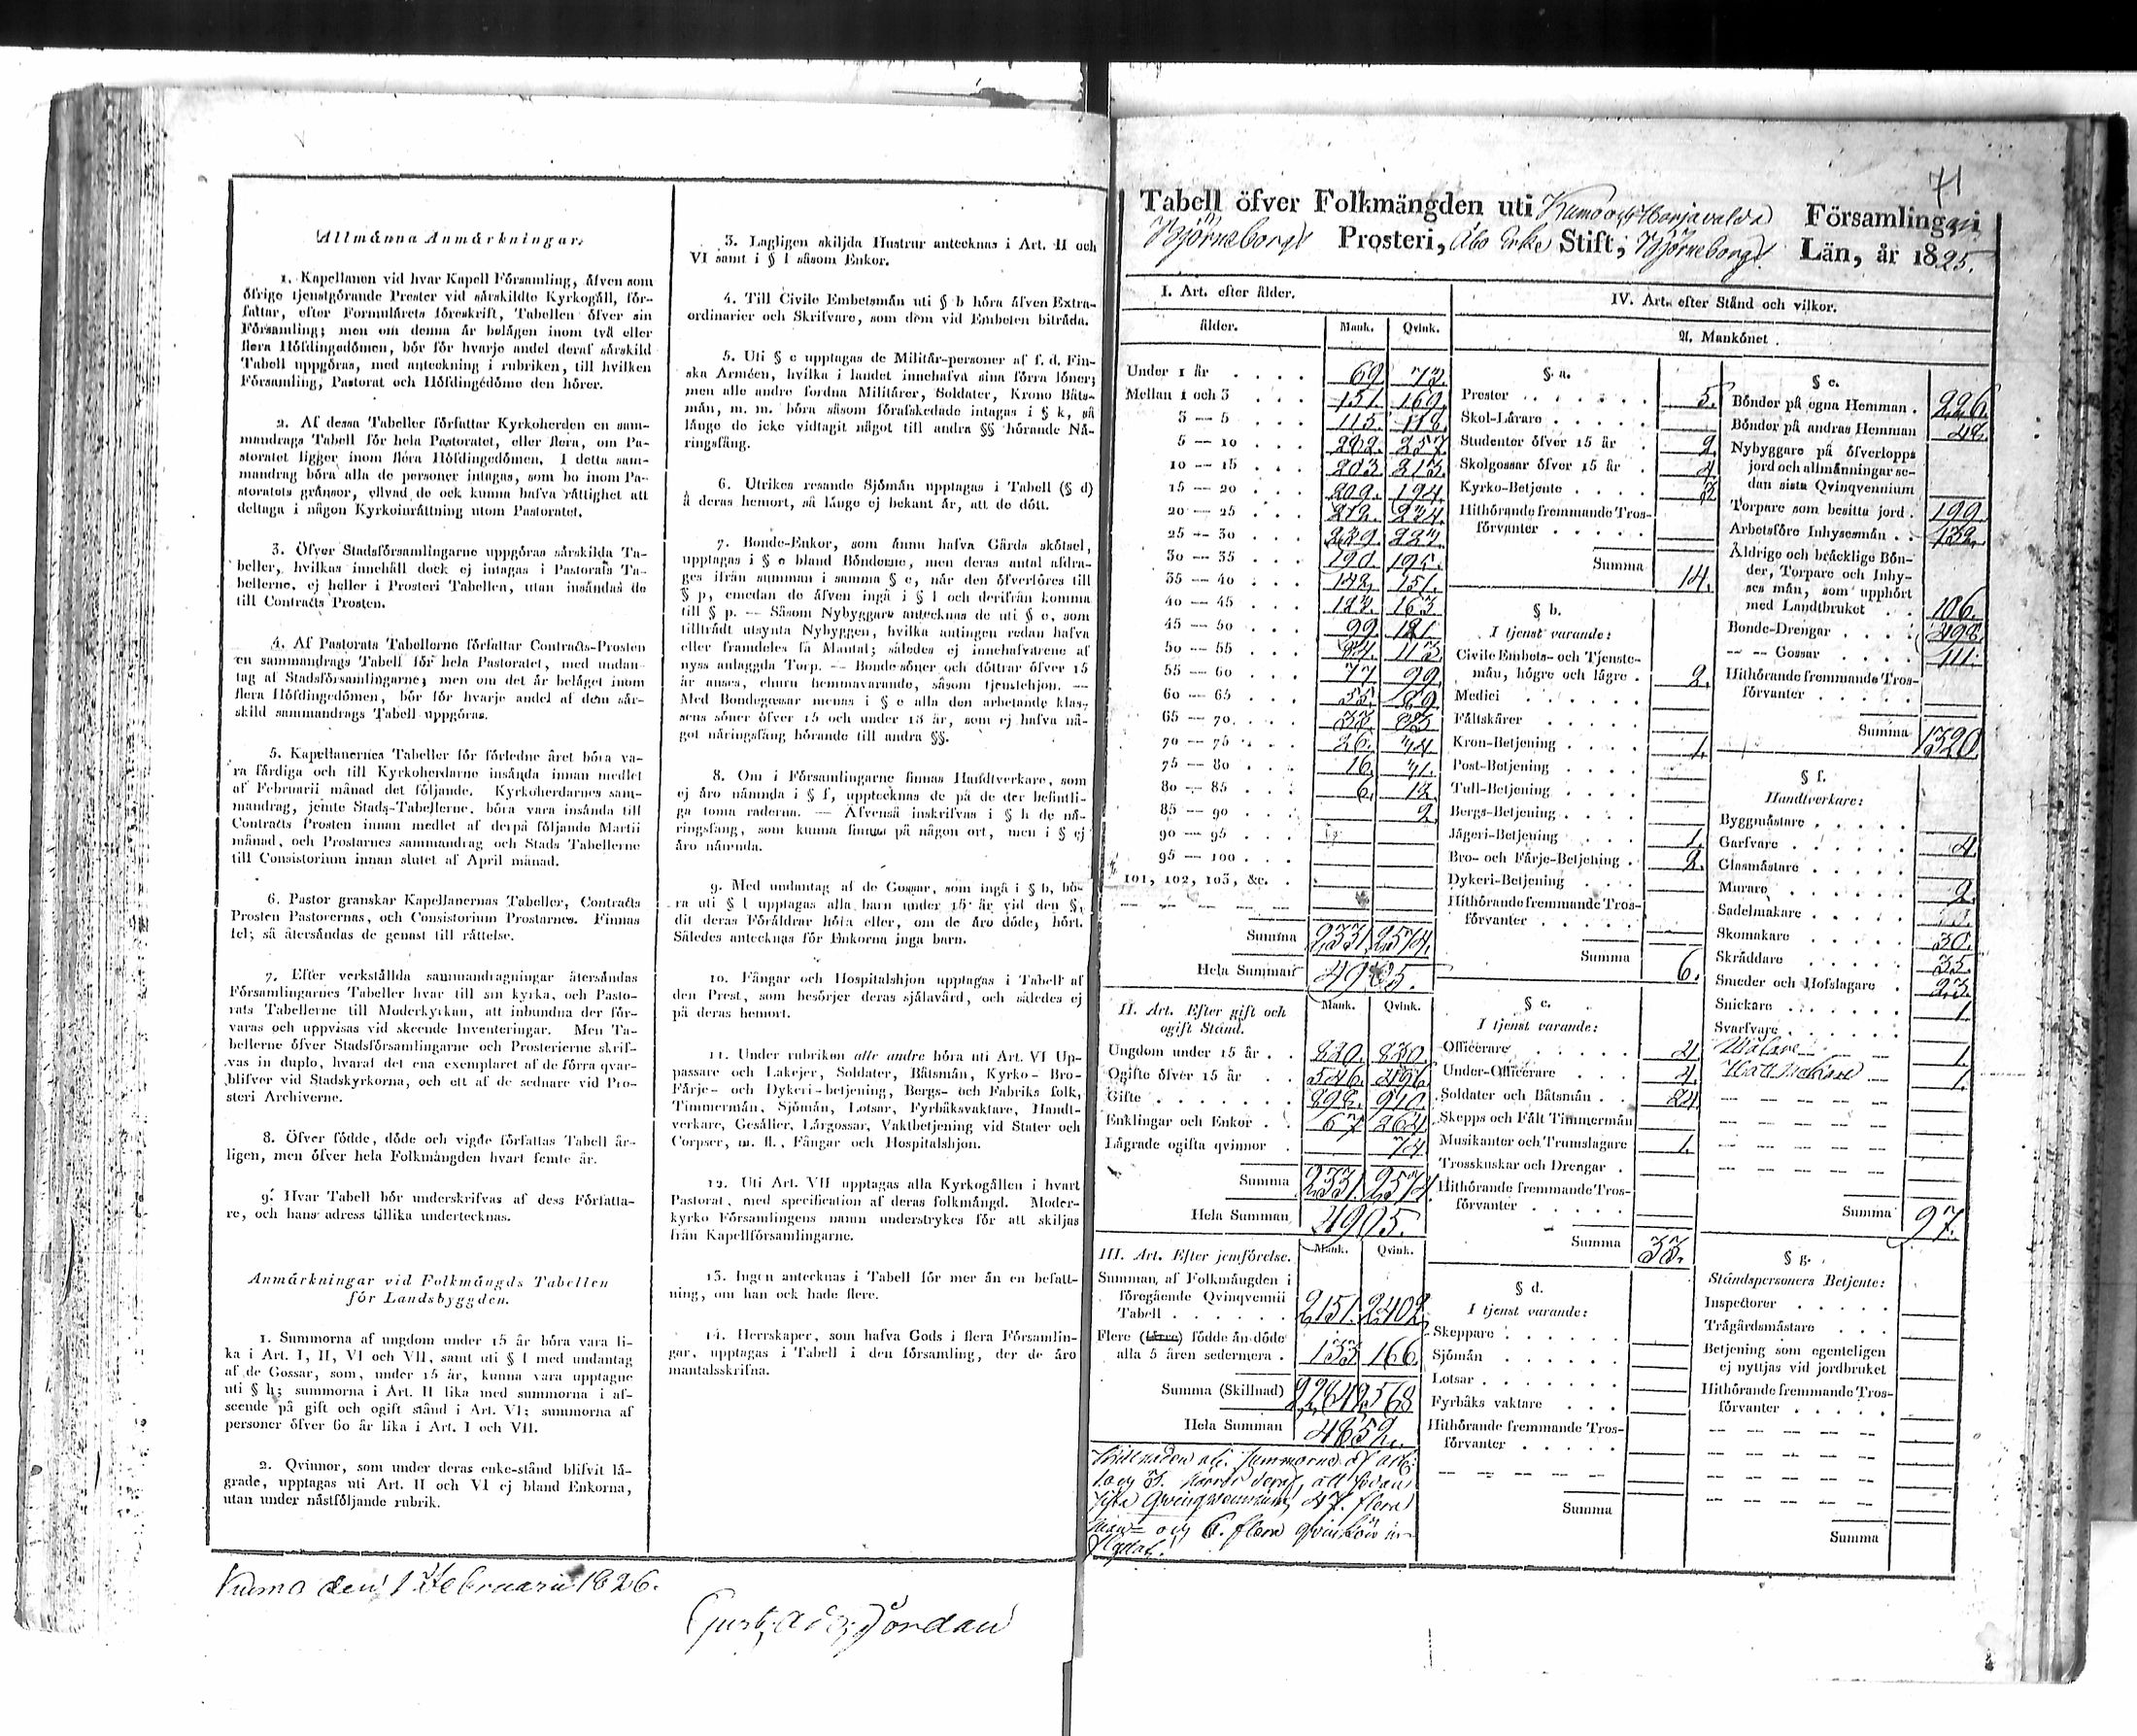 Allmänna Anmärkningar.
1. Kapellanen vid hvar Kapell Församling, äfven som
öfrige tjenstgörande Prester vid särskildte Kyrkogäll, för-
fattar, efter Formulärets föreskrift, Tabellen öfver sin
Församling; men om denna är belägen inom två eller
flera Höfdingedömen, bör för hvarje andel deraf särskild
Tabell uppgöras, med anteckning i rubriken, till hvilken
Församling, Pastorat och Höfdingedöme den hörer.
2. Af dessa Tabeller författar Kyrkoherden en sam-
mandrags Tabell för hela Pastoratet, eller flera, om Pa-
storatet ligger inom flera Höfdingedömen. I detta sam-
mandrag böra alla de personer intagas, som bo inom Pa-
storatets gränsor, ellvad de ock kunna hafva rättighet att
deltaga i någon Kyrkoinrättning utom Pastoratet.
3. Öfver Stadsförsamlingarne uppgöras särskilda Ta-
beller, hvilkas innehåll dock ej intagas i Pastorats Ta-
bellerne, ej heller i Prosteri Tabellen, utan insändas de
till Contracts Prosten.
4. Af Pastorats Tabellerne författar Contracts-Prosten
en sammandrags Tabell för hela Pastoratet, med undan-
tag af Stadsförsamlingarne; men om det är beläget inom
flera Höfdingedömen, bör för hvarje andel af dem sär-
skild sammandrags Tabell uppgöras.
5. Kapellanernes Tabeller för förledne året böra va-
ra färdiga och till Kyrkoherdarne insända innan medlet
af Februarii månad det följande. Kyrkoherdarnes sam-
mandrag, jemte Stads-Tabellerne, böra vara insända till
Contracts Prosten innan medlet af derpå följande Martii
månad, och Prostarnes sammandrag och Stads Tabellerne
till Consistorium innan slutet af April månad.
6. Pastor granskar Kapellanernas Tabeller, Contracts
Prosten Pastorernas, och Consistorium Prostarnes. Finnas
fel; så återsändas de genast till rättelse.
7. Efter verkställda sammandragningar återsändas
Församlingarnes Tabeller hvar till sin kyrka, och Pasto-
rats Tabellerne till Moderkyrkan, att inbundna der för-
varas och uppvisas vid skeende Inventeringar. Men Ta-
bellerne öfver Stadsförsamlingarne och Prosterierne skrif-
vas in duplo, hvaraf det ena exemplaret af de förra qvar-
blifver vid Stadskyrkorna, och ett af de sednare vid Pro-
steri Archiverne.
8. Öfver födde, döde och vigde författas Tabell år-
ligen, men öfver hela Folkmängden hvart femte år.
9. Hvar Tabell bör underskrifvas af dess Författa-
re, och hans adress tillika undertecknas.
Anmärkningar vid Folkmängds Tabellen
för Landsbyggden.
1. Summorna af ungdom under 15 år böra vara li-
ka i Art. I, II, VI och VII, samt uti § l med undantag
af de Gossar, som, under 15 år, kunna vara upptagne
uti § h; summorna i Art. II lika med summorna i af-
seende på gift och ogift stånd i Art. VI; summorna af
personer öfver 60 år lika i Art. I och VII.
2. Qvinnor, som under deras enke-stånd blifvit lä-
grade, upptagas uti Art. II och VI ej bland Enkorna,
utan under nästföljande rubrik.
3. Lagligen skiljda Hustrur antecknas i Art. II och
VI samt i § l såsom Enkor.
4. Till Civile Embetsmän uti § b höra äfven Extra-
ordinarier och Skrifvare, som dem vid Embeten biträda.
5. Uti § c upptagas de Militär-personer af f. d. Fin-
ska Arméen, hvilka i landet innehafva sina förra löner;
men alle andre fordna Militärer, Soldater, Krono Båts-
män, m. m. böra såsom förafskedade intagas i § k, så
länge de icke vidtagit något till andra §§ hörande Nä-
ringsfång.
6. Utrikes resande Sjömän upptagas i Tabell (§ d)
å deras hemort, så länge ej bekant är, att de dött.
7. Bonde-Enkor, som ännu hafva Gårds skötsel,
upptagas i § e bland Bönderne, men deras antal afdra-
ges ifrån summan i samma § e, när den öfverföres till
§ p, emedan de äfven ingå i § l och derifrån komma
till § p. — Såsom Nybyggare antecknas de uti § e, som
tillträdt utsynta Nybyggen, hvilka antingen redan hafva
eller framdeles få Mantal; således ej innehafvarene af
nyss anlaggda Torp. — Bondesöner och döttrar öfver 15
år anses, ehuru hemmavarande, såsom tjenstehjon. —
Med Bondegossar menas i § e alla den arbetande klas-
sens söner öfver 15 och under 18 år, som ej hafva nå-
got näringsfång hörande till andra §§.
8. Om i Församlingarne finnas Handtverkare, som
ej äro nämnda i § f, upptecknas de på de der befintli-
ga toma raderna. — Äfvenså inskrifvas i § h de nä-
ringsfång, som kunna finnas på någon ort, men i § ej
äro nämnda.
9. Med undantag af de Gossar, som ingå i § h, bö-
ra uti § l upptagas alla barn under 15 år vid den §,
dit deras Föräldrar höra eller, om de äro döde, hört.
Således antecknas för Enkorna inga barn.
10. Fångar och Hospitalshjon upptagas i Tabell af
den Prest, som besörjer deras själavård, och således ej
på deras hemort.
11. Under rubriken alle andre böra uti Art. VI Up-
passare och Lakejer, Soldater, Båtsmän, Kyrko- Bro-
Färje- och Dykeri-betjening, Bergs- och Fabriks folk,
Timmermän, Sjömän, Lotsar, Fyrbåksvaktare, Handt-
verkare, Gesäller, Lärgossar, Vaktbetjening vid Stater och
Corpser, m. fl., Fångar och Hospitalshjon.
12. Uti Art. VII upptagas alla Kyrkogällen i hvart
Pastorat, med specification af deras folkmängd. Moder-
kyrko Församlingens namn understrykes för att skiljas
från Kapellförsamlingarne.
13. Ingen antecknas i Tabell för mer än en befatt-
ning, om han ock hade flere.
14. Herrskaper, som hafva Gods i flera Församlin-
gar, upptagas i Tabell i den församling, der de äro
mantalsskrifna.
Kumo den 1 Februarii 1826.
71
Tabell öfver Folkmängden uti Kumo och Harjavalda Församlingari
Björneborgs Prosteri, Åbo Erke Stift, Björneborgs Län, år 1825.
I. Art. efter ålder.
ålder. Mank. Qvink.
Under 1 år 69. 73.
Mellan 1 och 3 151. 169.
3 — 5 115. 118.
5 — 10 282. 257.
10 — 15 203. 213.
15 — 20 209. 194.
20 — 25 212. 234.
25 — 30 229. 227.
30 — 35 190. 195.
35 — 40 142. 151.
40 — 45 122. 163
45 — 50 99. 121.
50 — 55 84. 113.
55 — 60 77. 99.
60 — 65 55. 89.
65 — 70 33.
70 — 75
75 — 80 16.
80 — 85 6. 12.
85 — 90 2.
90 — 95
95 — 100
101, 102, 103, &c.
Summa 2331. 2574.
Hela Summan 4905.
II. Art. Efter gift och
ogift Stånd.
Mank. Qvink.
Ungdom under 15 år 820. 830.
Ogifte öfver 15 år 546. 496.
Gifte 898. 910.
Enklingar och Enkor 67. 264.
Lägrade ogifta qvinnor 74.
Summa 2331. 2574.
Hela Summan 4905.
III. Art. Efter jemförelse. Mank. Qvink.
Summan, af Folkmängden i
föregående Qvinqvennii
Tabell 2151. 2402.
Flere (färre) födde än döde
alla 5 åren sedermera 133 166
Summa (Skillnad) 2284. 2568
Hela Summan 4852.
IV. Art. efter Stånd och vilkor.
A. Mankönet.
§ a.
Prester 5.
Skol-Lärare
Studenter öfver 15 år 2.
Skolgossar öfver 15 år 4.
Kyrko-Betjente 3.
Hithörande fremmande Tros-
förvanter
Summa 14.
§ b.
I tjenst varande:
Civile Embets- och Tjenste-
män, högre och lägre 2.
Medici
Fältskärer
Kron-Betjening 1.
Post-Betjening
Tull-Betjening
Bergs-Betjening
Jägeri-Betjening 1.
Bro- och Färje-Betjening 2.
Dykeri-Betjening
Hithörande fremmande Tros-
förvanter
Summa 6.
§ c.
I tjenst varande:
Officerare 4.
Under-Officerare 4.
Soldater och Båtsmän 24.
Skepps och Fält Timmermän
Musikanter och Trumslagare 1.
Trosskuskar och Drengar
Hithörande fremmande Tros-
förvanter
Summa 33.
§ d.
I tjenst varande:
Skeppare
Sjömän
Lotsar
Fyrbåks vaktare
Hithörande fremmande Tros-
förvanter
Summa
§ e.
Bönder på egna Hemman 226.
Bönder på andras Hemman 48.
Nybyggare på öfverlopps
jord och allmänningar se-
dan sista Qvinqvennium
Torpare som besitta jord 199.
Arbetsföre Inhysesmän 132.
Äldrige och bräcklige Bön-
der, Torpare och Inhy-
ses män, som upphört
med Landtbruket 106.
Bonde-Drengar 498.
— — Gossar 111.
Hithörande fremmande Tros-
förvanter
Summa 1320.
§ f.
Handtverkare:
Byggmästare
Garfvare 4.
Glasmästare
Murare 2.
Sadelmakare
Skomakare 30.
Skräddare 35.
Smeder och Hofslagare 23.
Snickare 1
Svarfvare
Målare 1.
Hattmakare 1.
Summa 97.
§ g.
Ståndspersoners Betjente:
Inspectorer
Trägårdsmästare
Betjening som egenteligen
ej nyttjas vid jordbruket
Hithörande fremmande Tros-
förvanter
Summa